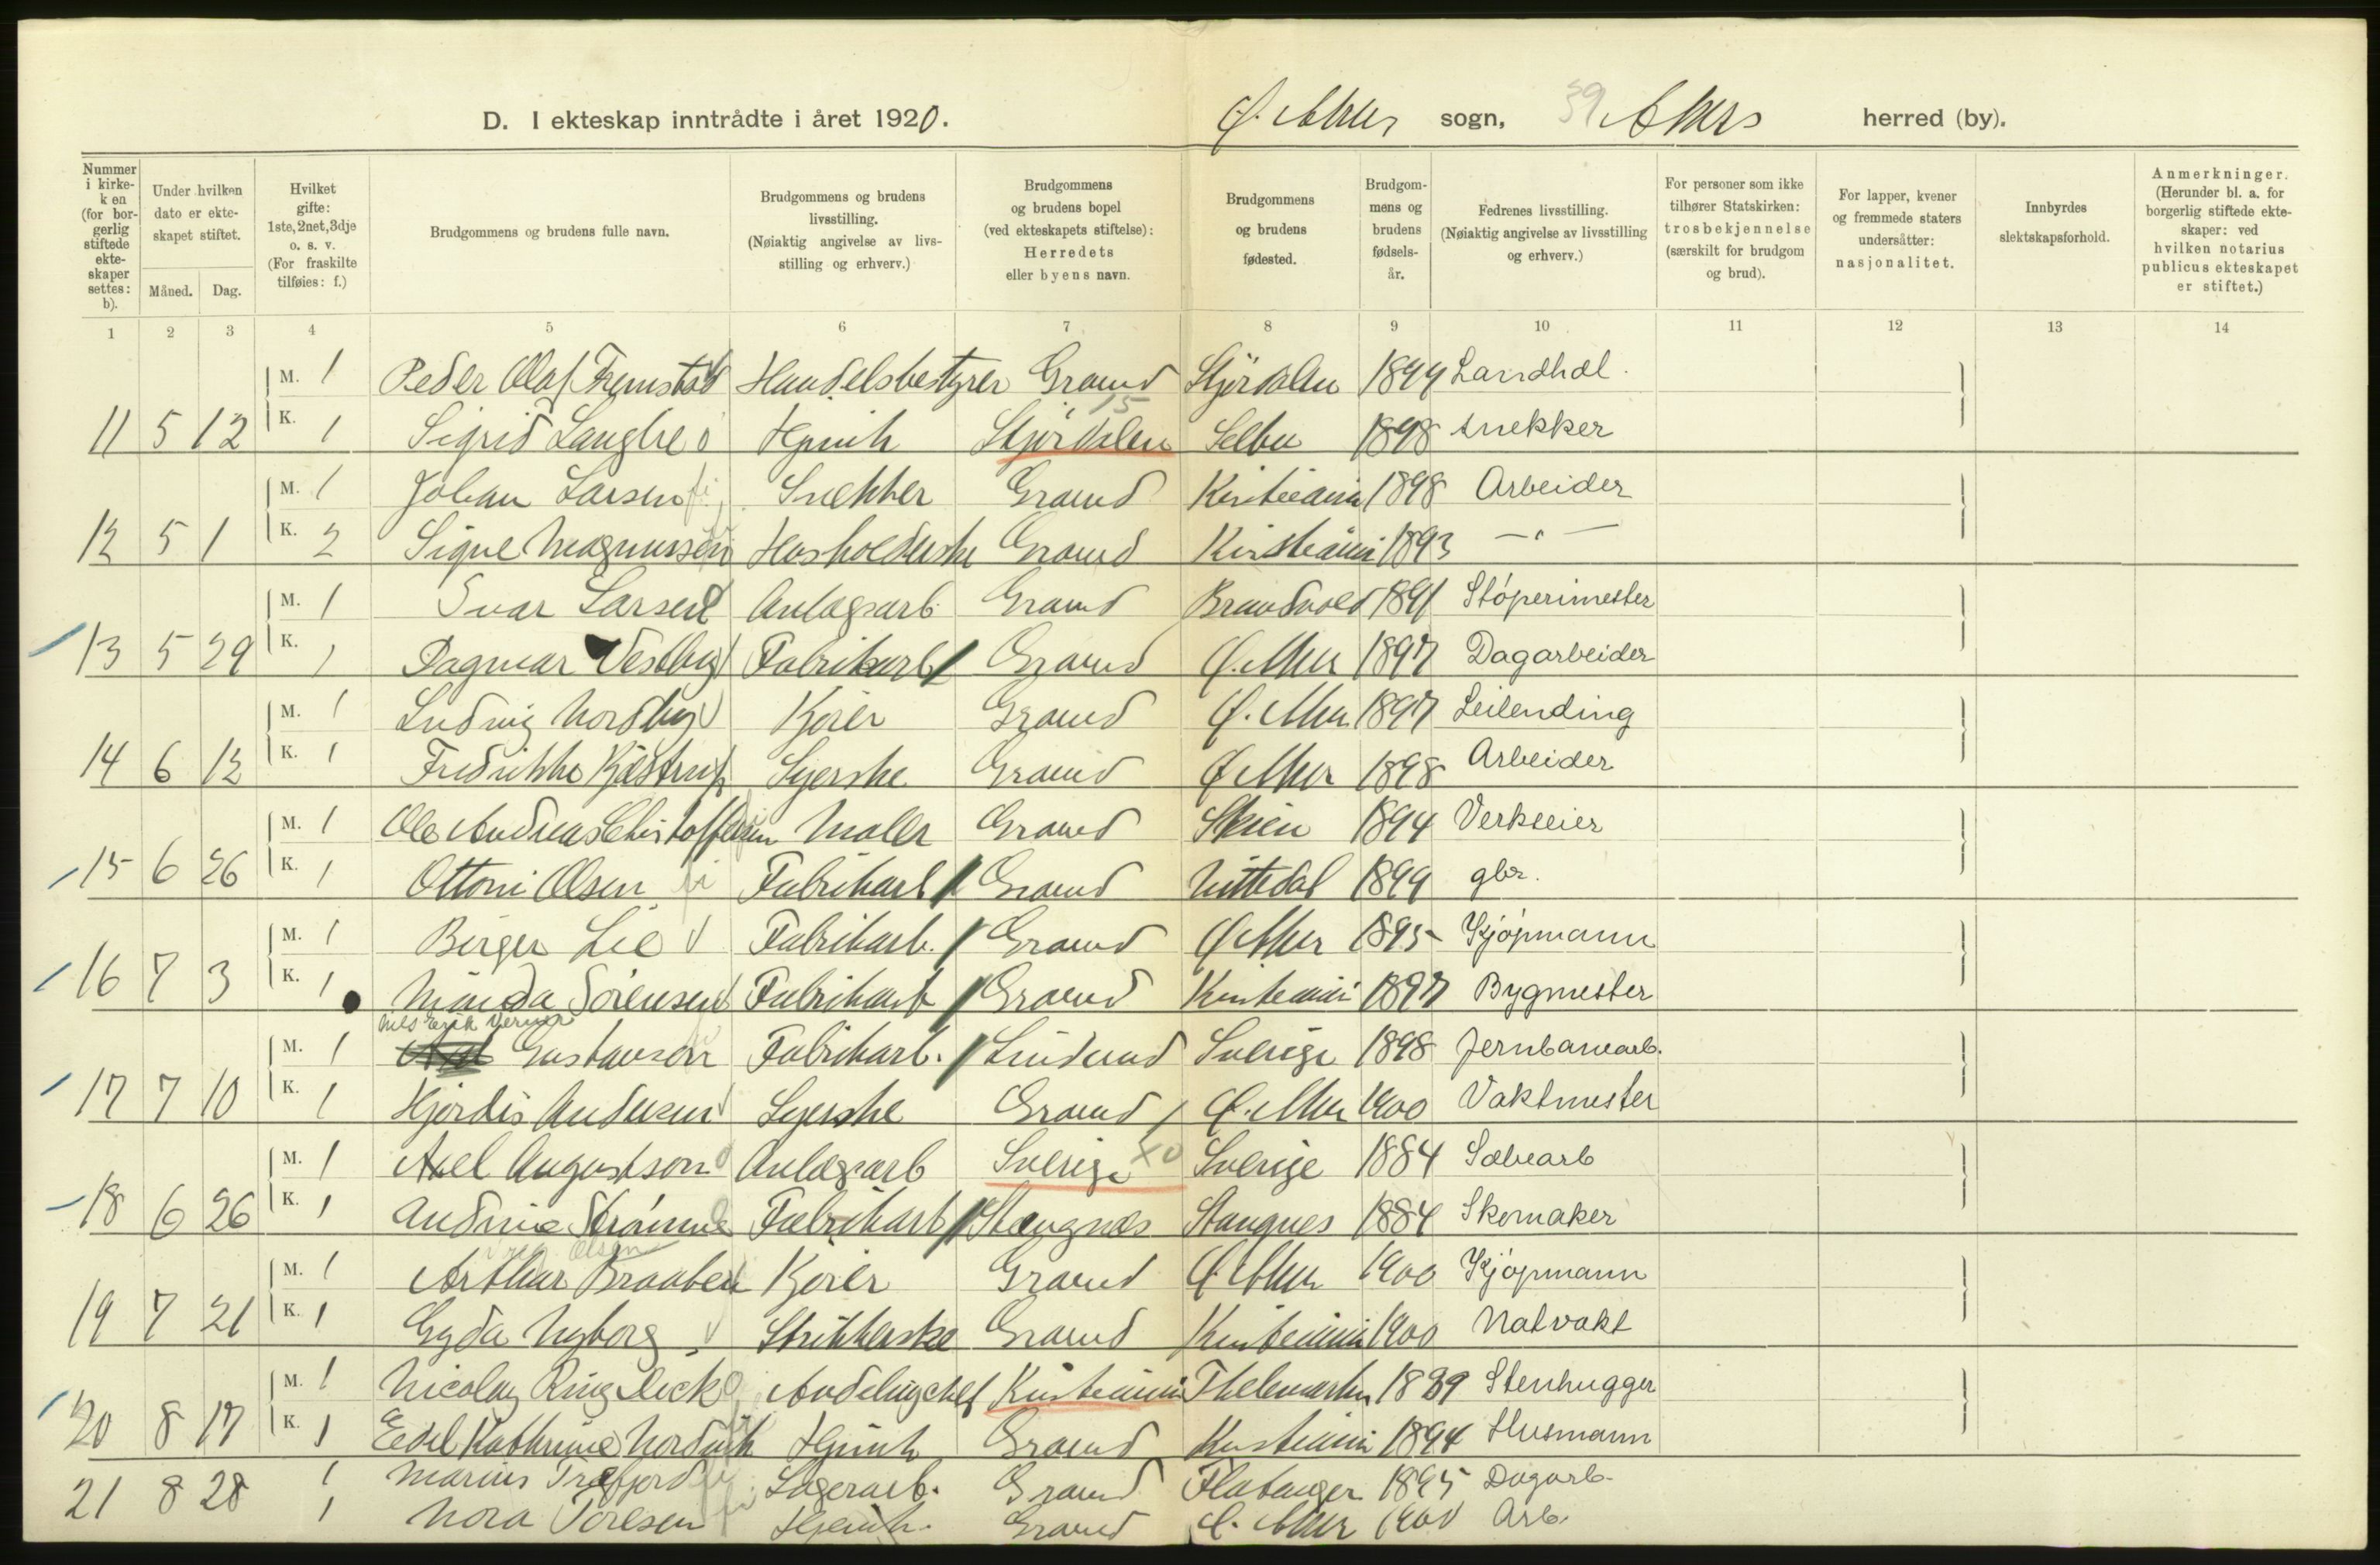 D. I ekteskap inntrådte i året 1920. Ø. Aker sogn, 39 Akers herred (by).
Nummer i kirkeboken (for borgerlig stiftede ekteskaper settes: b).
Under hvilken dato er ekteskapet stiftet.
Måned. Dag.
Hvilket gifte: 1ste, 2net, 3dje o. s. v. (For fraskilte tilføies: f.)
Brudgommens og brudens fulle navn.
Brudgommens og brudens livsstilling. (Nøiaktig angivelse av livsstilling og erhverv.)
Brudgommens og brudens bopel (ved ekteskapets stiftelse): Herredets eller byens navn.
Brudgommens og brudens fødested.
Brudgommens og brudens fødselsår.
Fedrenes livsstilling. (Nøiaktig angivelse av livsstilling og erhverv.)
For personer som ikke tilhører Statskirken: trosbekjennelse (særskilt for brudgom og brud).
For lapper, kvener og fremmede staters undersåtter: nasjonalitet.
Innbyrdes slektskapsforhold.
Anmerkninger. (Herunder bl. a. for borgerlig stiftede ekteskaper: ved hvilken notarius publicus ekteskapet er stiftet.)
1 2 3 4 5 6 7 8 9 10 11 12 13 14
M. 1 Peder Olaf Fremstad Handelsbestyrer Grorud Stjørdalen 1899 Landhdl.
11 5 12 K. 1 Sigrid Langli Hjemh Stjørdalen 15 Selbu 1898 snekker
M. 1 Johan Larsen Snekker Grorud Kristiania 1898 Arbeider
12 5 1 K. 2 Signe Magnussen Husholderske Grorud Kristiania 1893 — " —
M. 1 Ivar Larsen Anlægsarb Grorud Brandvold 1891 Støperimester
13 5 29 K. 1 Dagmar Vestby Fabrikarb Grorud Ø. Aker 1897 Dagarbeider
M. 1 Ludvig Nordby Kjører Grorud Ø. Aker 1897 Leilending
14 6 12 K. 1 Fredrikke Kjæstrup Syerske Grorud Ø Aker 1898 Arbeider
M. 1 Ole Andreas Christoffersen Maler Grorud Skien 1894 Verkseier
15 6 26 K. 1 Ottoni Olsen Fabrikarb Grorud Nittedal 1899 gbr.
M. 1 Birger Lie Fabrikarb. Grorud Ø Aker 1895 Kjøpmann
16 7 3 K. 1 Minda Sørensen Fabrikarb Grorud Kristiania 1897 Bygmester
Nils Erik Verner
M. 1 Gustavson Fabrikarb. Linderud Sverige 1898 Jernbanearb.
17 7 10 K. 1 Hjørdis Andersen Syerske Grorud Ø. Aker 1900 Vaktmester
M. 1 Axel Augustson Anlægsarb Sverige Sverige 1884 Sæbearb
18 6 26 K. 1 Andrine Strømme Fabrikarb Stangnes Stangnes 1884 Skomaker
Olsen
M. 1 Arthur Braaten Kjører Grorud Ø Aker 1900 Kjøpmann
19 7 21 K. 1 Gyda Nyborg Strikkerske Grorud Kristiania 1900 Natvakt
M. 1 Nicolay Ringdeck Avdelingchef Kristiania Thelemarken 1889 Stenhugger
20 8 17 K. 1 Edel Kathrine Nordvik Hjemh Grorud Kristiania 1894 Husmann
1 Marius Træfjord Lagerarb. Grorud Flatanger 1895 Dagarb
21 8 28 1 Nora Toresen Hjemh. Grorud Ø. Aker 1900 Arb.